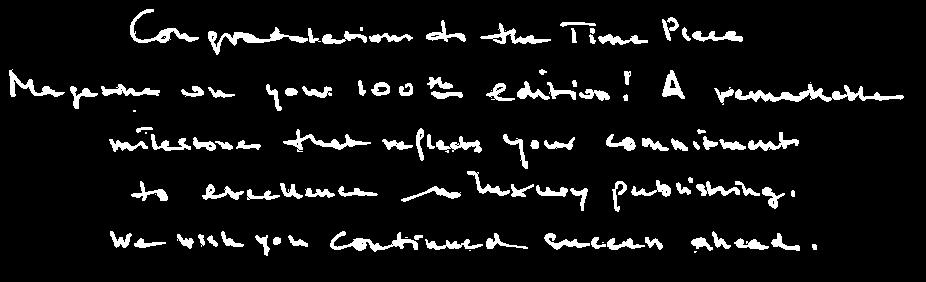 Congratulations to the Time Piece
Magazine on your 100th edition! A remarkable
milestone that reflects your commitment
to excellence in luxury publishing.
We wish you continued success ahead.